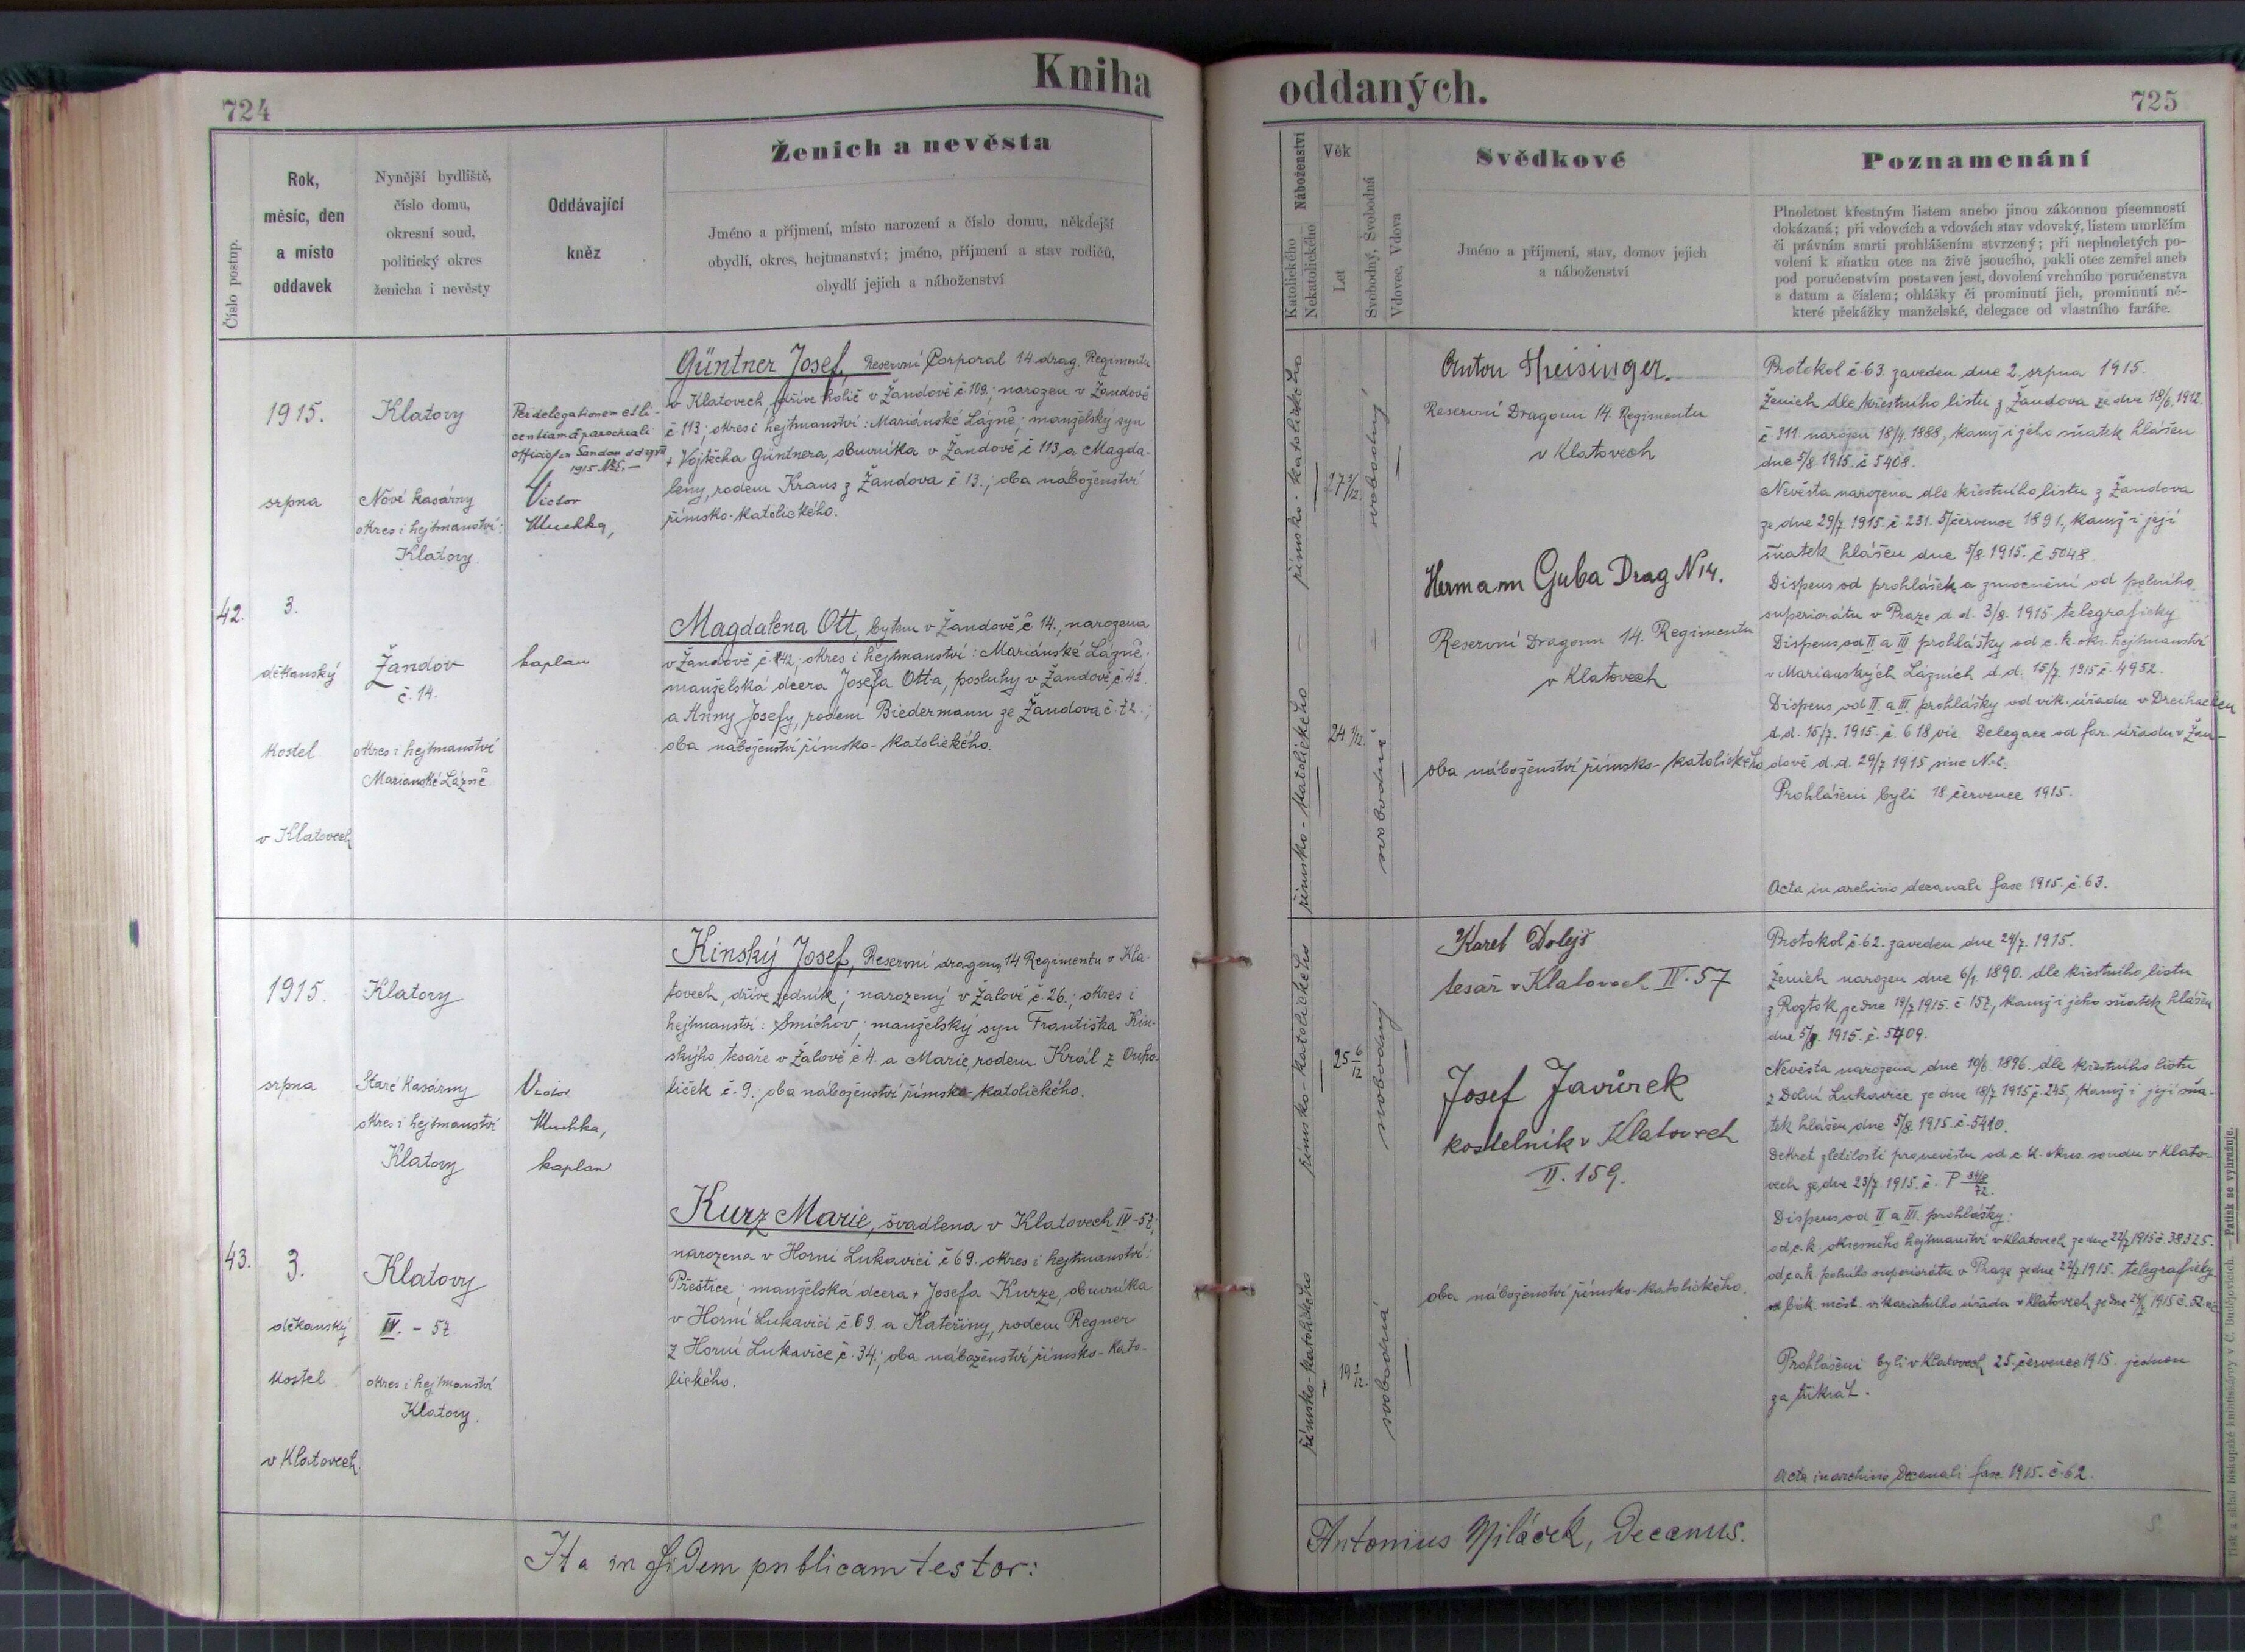 Kniha oddaných.
724
725
Číslo postup.
Rok,
měsíc, den
a místo
oddavek
Nynější bydliště,
číslo domu,
okresní soud,
politický okres
ženicha i nevěsty
Oddávající
kněz
Ženich a nevěsta
Jméno a příjmení, místo narození a číslo domu, někdejší
obydlí, okres, hejtmanství; jméno, příjmení a stav rodičů,
obydlí jejich a náboženství
Náboženství
Katolického
Nekatolického
Věk
Let
Svobodný, Svobodná
Vdovec, Vdova
Svědkové
Jméno a příjmení, stav, domov jejich
a náboženství
Poznamenání
Plnoletost křestným listem anebo jinou zákonnou písemností
dokázaná; při vdovcích a vdovách stav vdovský, listem umrlčím
či právním smrti prohlášením stvrzený; při neplnoletých po-
volení k sňatku otce na živě jsoucího, pakli otec zemřel aneb
pod poručenstvím postaven jest, dovolení vrchního poručenstva
s datum a číslem; ohlášky či prominutí jich, prominutí ně-
které překážky manželské, delegace od vlastního faráře.
42.
1915.
srpna
3.
děkanský
kostel
v Klatovech
Klatovy
Nové kasárny
okres i hejtmanství:
Klatovy.
Žandov
č. 14.
okres i hejtmanství
Marianské Lázně.
Per delegationem et li-
centiam a parochiali
1915
Victor
Muchka,
kaplan
Güntner Josef, Reservní Corporal 14 drag. Regimentu
v Klatovech, dříve holič v Žandově č 109; narozen v Žandově
č 113; okres i hejtmanství: Mariánské Lázně; manželský syn
+ Vojtěcha Güntnera, obuvníka v Žandově č 113 a Magda-
leny, rodem Kraus z Žandova č 13.; oba náboženství
římsko-katolického.
Magdalena Ott, bytem v Žandově č 14., narozena
v Žandově č 42; okres i hejtmanství: Mariánské Lázně;
manželská dcera Josefa Otta, posluhy v Žandově č.
a Anny Josefy, rodem Biedermann ze Žandova č.
oba náboženství římsko-katolického.
římsko-katolického
římsko-katolického
27 3/12
24 1/12.
svobodný
svobodná
Anton Theisinger.
Reservní Dragoun 14. Regimentu
v Klatovech
Hermann Guba Drag N 14.
Reservní Dragoun 14. Regimentu
v Klatovech
oba náboženství římsko-katolického
Protokol č. 63. zaveden dne 2. srpna 1915.
Ženich dle křestního listu z Žandova ze dne 18/6. 1912.
č. 311. narozen 18/4. 1888, kamž i jeho sňatek hlášen
dne 5/8 1915. č 5408.
Nevěsta narozena dle křestního listu z Žandova
ze dne 29/7. 1915. č. 231. 5/července 1891., kamž i její
sňatek hlášen dne 5/8. 1915. č 5048.
Dispens od prohlášek a zmocnění od polního
superiorátu v Praze d. d. 3/8. 1915. telegraficky
Dispens od II a III prohlášky od c. k. okr. hejtmanství
v Mariánských Lázních d. d. 15/7. 1915 č. 4952.
Dispens od II. a III. prohlášky od vik. úřadu v Dreihacken
d. d. 15/7. 1915. č. 618 vic. Delegace od far. úřadu v Žan-
dově d. d. 29/7 1915 sine No.
Prohlášeni byli 18 července 1915.
Acta in archivio decanali fasc 1915. č 63.
43.
1915.
srpna
3.
děkanský
kostel
v Klatovech.
Klatovy
Staré Kasárny
okres i hejtmanství
Klatovy
Klatovy
IV. - 57.
okres i hejtmanství
Klatovy.
Victor
Muchka,
kaplan
Kinský Josef, Reservní dragoun 14 Regimentu v Kla-
tovech, dříve zedník; narozený v Žalově č. 26.; okres i
hejtmanství: Smíchov; manželský syn Františka Kin-
ského, tesaře v Žalově č 4. a Marie, rodem Král z Ouho-
liček č. 9.; oba náboženství římsko-katolického.
Kurz Marie, švadlena v Klatovech IV-57,
narozena v Horní Lukavici č 69. okres i hejtmanství:
Přeštice; manželská dcera + Josefa Kurze, obuvníka
v Horní Lukavici č. 69. a Kateřiny, rodem Regner
z Horní Lukavice č. 34.; oba náboženství římsko-kato-
lického.
římsko-katolického
římsko-katolického
25 6/12
19 1/12.
svobodný
svobodná
Karel Dolejš
tesař v Klatovech IV. 57
Josef Javůrek
kostelník v Klatovech
II. 159.
oba náboženství římsko-katolického.
Protokol č. 62. zaveden dne 24/7. 1915.
Ženich narozen dne 6/1. 1890. dle křestního listu
z Roztok ze dne 19/7 1915. č. 157., kamž i jeho sňatek hlášen
dne 5/8. 1915. č. 5409.
Nevěsta narozena dne 10/6. 1896. dle křestního listu
z Dolní Lukavice ze dne 18/7 1915 č. 245., kamž i její sňa-
tek hlášen dne 5/8. 1915. č. 5410.
Dekret zletilosti pro nevěstu od c. k. okres. soudu v Klato-
vech ze dne 23/7. 1915. č. P
Dispens od II a III. prohlášky:
od c. k. okresního hejtmanství v Klatovech ze dne 22/7 1915 č. 38325.
od c. a k. polního superiorátu v Praze ze dne 22/7 1915. telegraficky.
od bisk. měst. vikariatního úřadu v Klatovech ze dne 24/7 1915 č. 52.
Prohlášeni byli v Klatovech 25. července 1915. jednou
za třikrát.
Acta in archivio Decanali fasc. 1915. č. 62.
Ita in fidem publicam testor:
Antonius Miláček, Decanus.
Tisk a sklad biskupské knihtiskárny v Č. Budějovicích. — Patisk se vyhražuje.